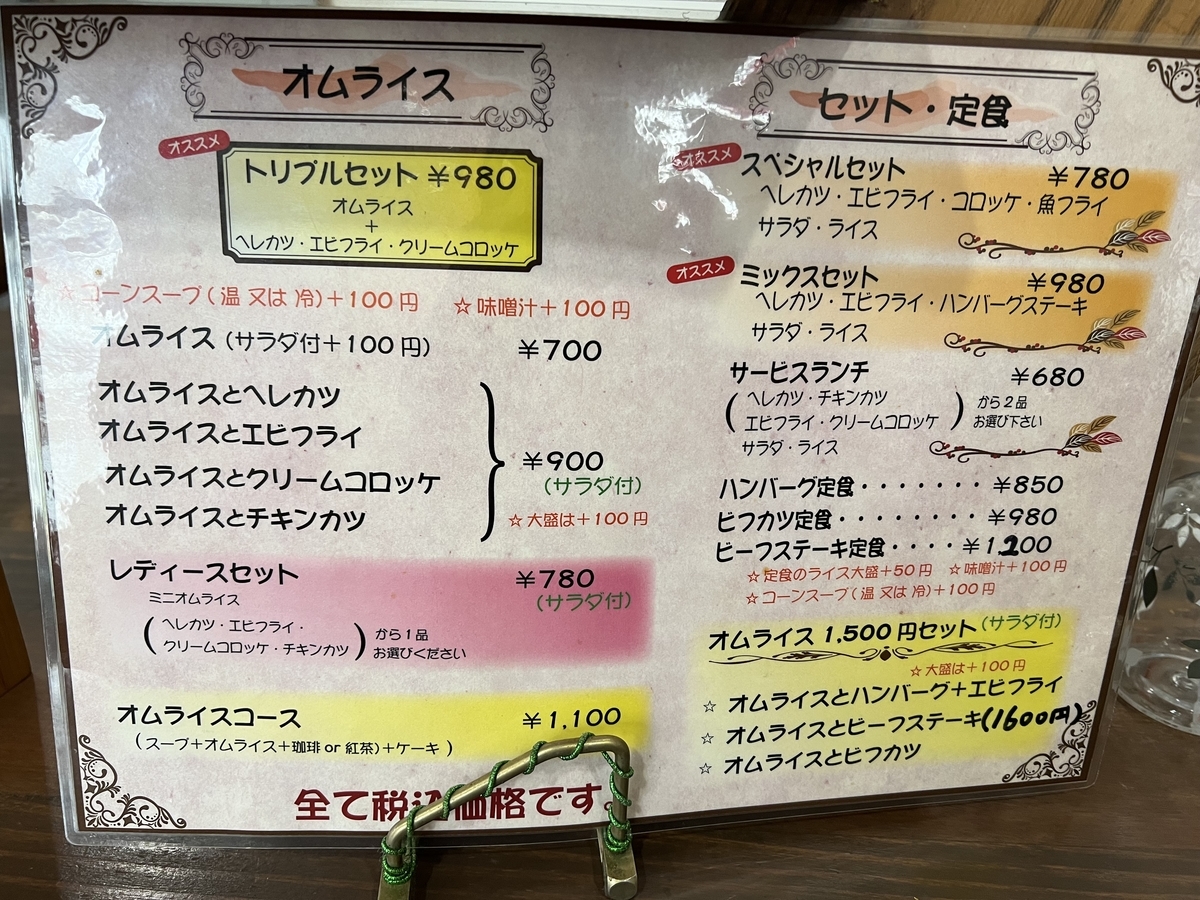 オムライス
オススメ
トリプルセット ￥980
オムライス
＋
ヘレカツ・エビフライ・クリームコロッケ
☆コーンスープ(温 又は 冷)＋100円 ☆味噌汁＋100円
オムライス (サラダ付＋100円) ￥700
オムライスとヘレカツ
オムライスとエビフライ
オムライスとクリームコロッケ
オムライスとチキンカツ
￥900
(サラダ付)
☆大盛は＋100円
レディースセット ￥780
ミニオムライス (サラダ付)
(ヘレカツ・エビフライ・
クリームコロッケ・チキンカツ)
から1品
お選びください
オムライスコース ￥1,100
(スープ＋オムライス＋珈琲 or 紅茶)＋ケーキ)
全て税込価格です。
セット・定食
オススメ
スペシャルセット ￥780
ヘレカツ・エビフライ・コロッケ・魚フライ
サラダ・ライス
オススメ
ミックスセット ￥980
ヘレカツ・エビフライ・ハンバーグステーキ
サラダ・ライス
サービスランチ ￥680
(ヘレカツ・チキンカツ
エビフライ・クリームコロッケ)
から2品
お選び下さい
サラダ・ライス
ハンバーグ定食・・・・・・・ ￥850
ビフカツ定食・・・・・・・・ ￥980
ビーフステーキ定食・・・・￥1.200
☆定食のライス大盛＋50円 ☆味噌汁＋100円
☆コーンスープ(温 又は 冷)＋100円
オムライス 1,500円セット(サラダ付)
☆大盛は＋100円
☆ オムライスとハンバーグ＋エビフライ
☆ オムライスとビーフステーキ(1600円)
☆ オムライスとビフカツ